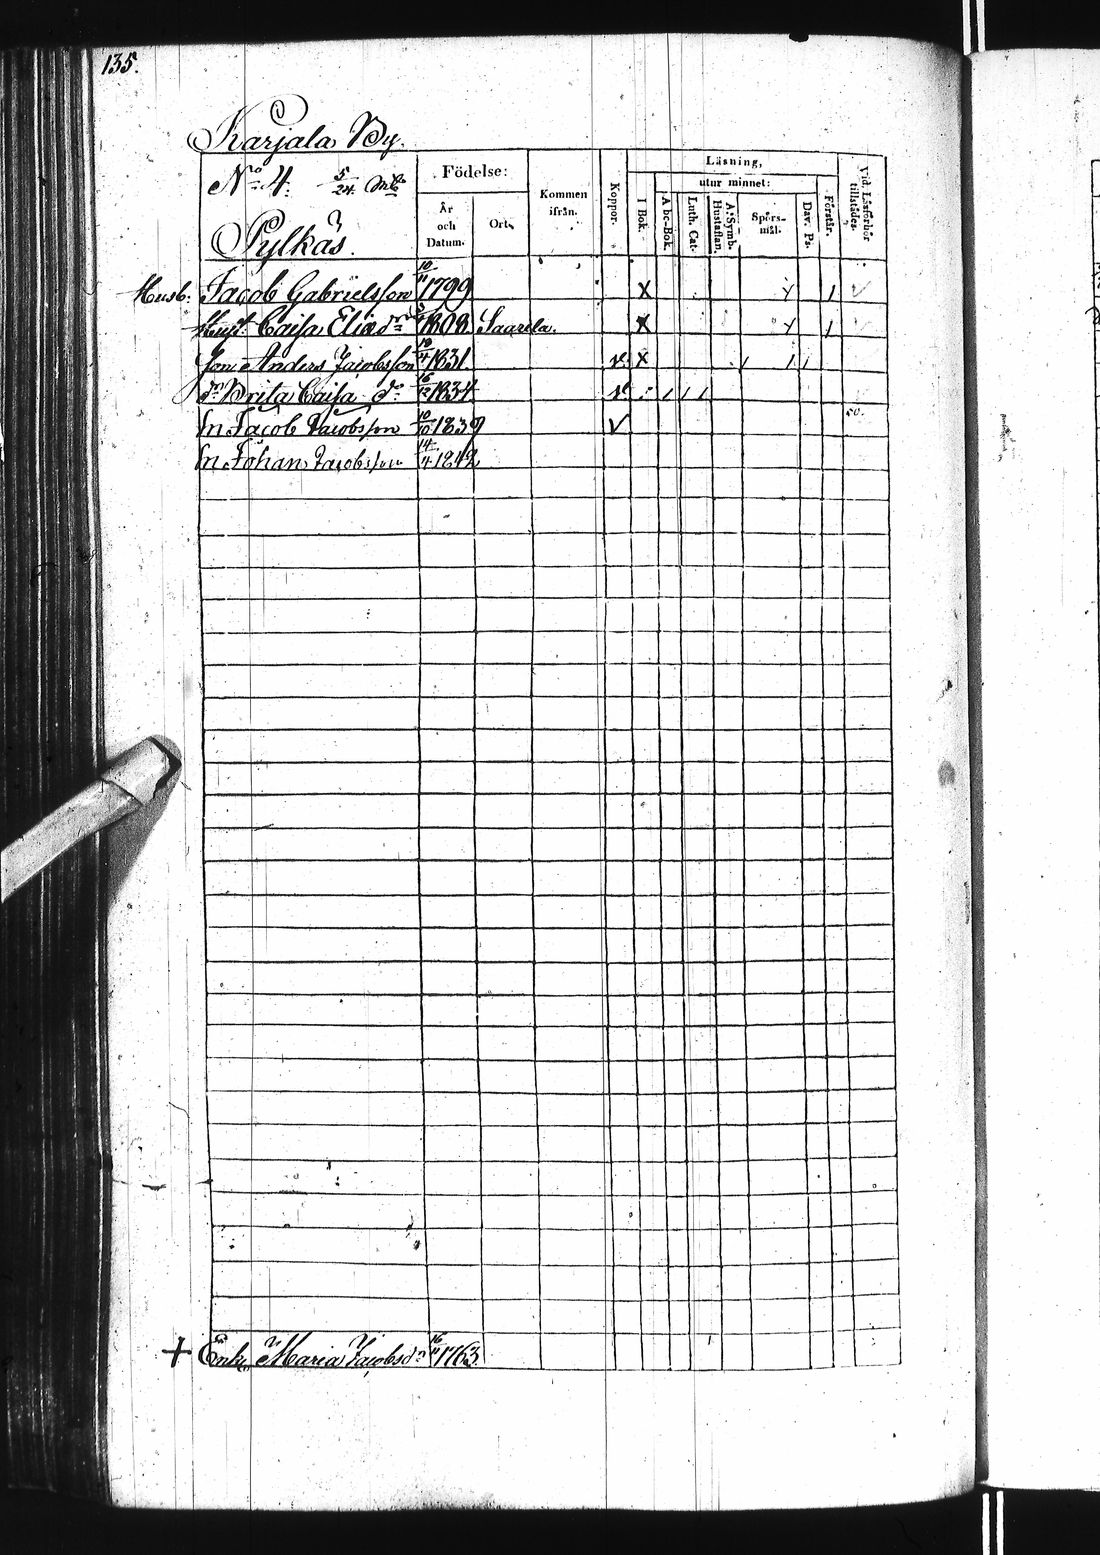 135.
Karjala By.
No 4. 5/24 Ml.
Pylkäs.
Födelse:
År och Datum.
Ort.
Kommen ifrån.
Koppor.
Läsning,
I Bok.
utur minnet:
A bc-Bok.
Luth. Cat.
A. Symb. Hustaflan.
Spörs-mål.
Dav. Ps.
Förstår.
Vid Läsförhör tillstädes.
Husb: Jacob Gabrielsson 10/11 1799 X x 1
Hust. Caisa Eliæ dr 1808 Saarela. X x 1
Son Anders Jacobsson 10/4 1831. v. X
dr Brita Caisa do 16/12 1834 v.
Sn Jacob Jacobsson 10/10 1839 v 50.
Sn Johan Jacobsson 14/4 1842
+ Enk. Maria Jacobsdr 16/11 1763.